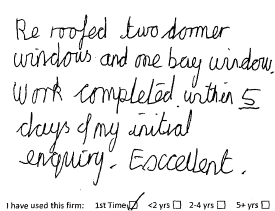 Re roofed two dormer
windows and one bay window.
Work completed within 5
days of my initial
enquiry. Exccellent.
I have used this firm: 1st Time ☑ <2 yrs ☐ 2-4 yrs ☐ 5+ yrs ☐